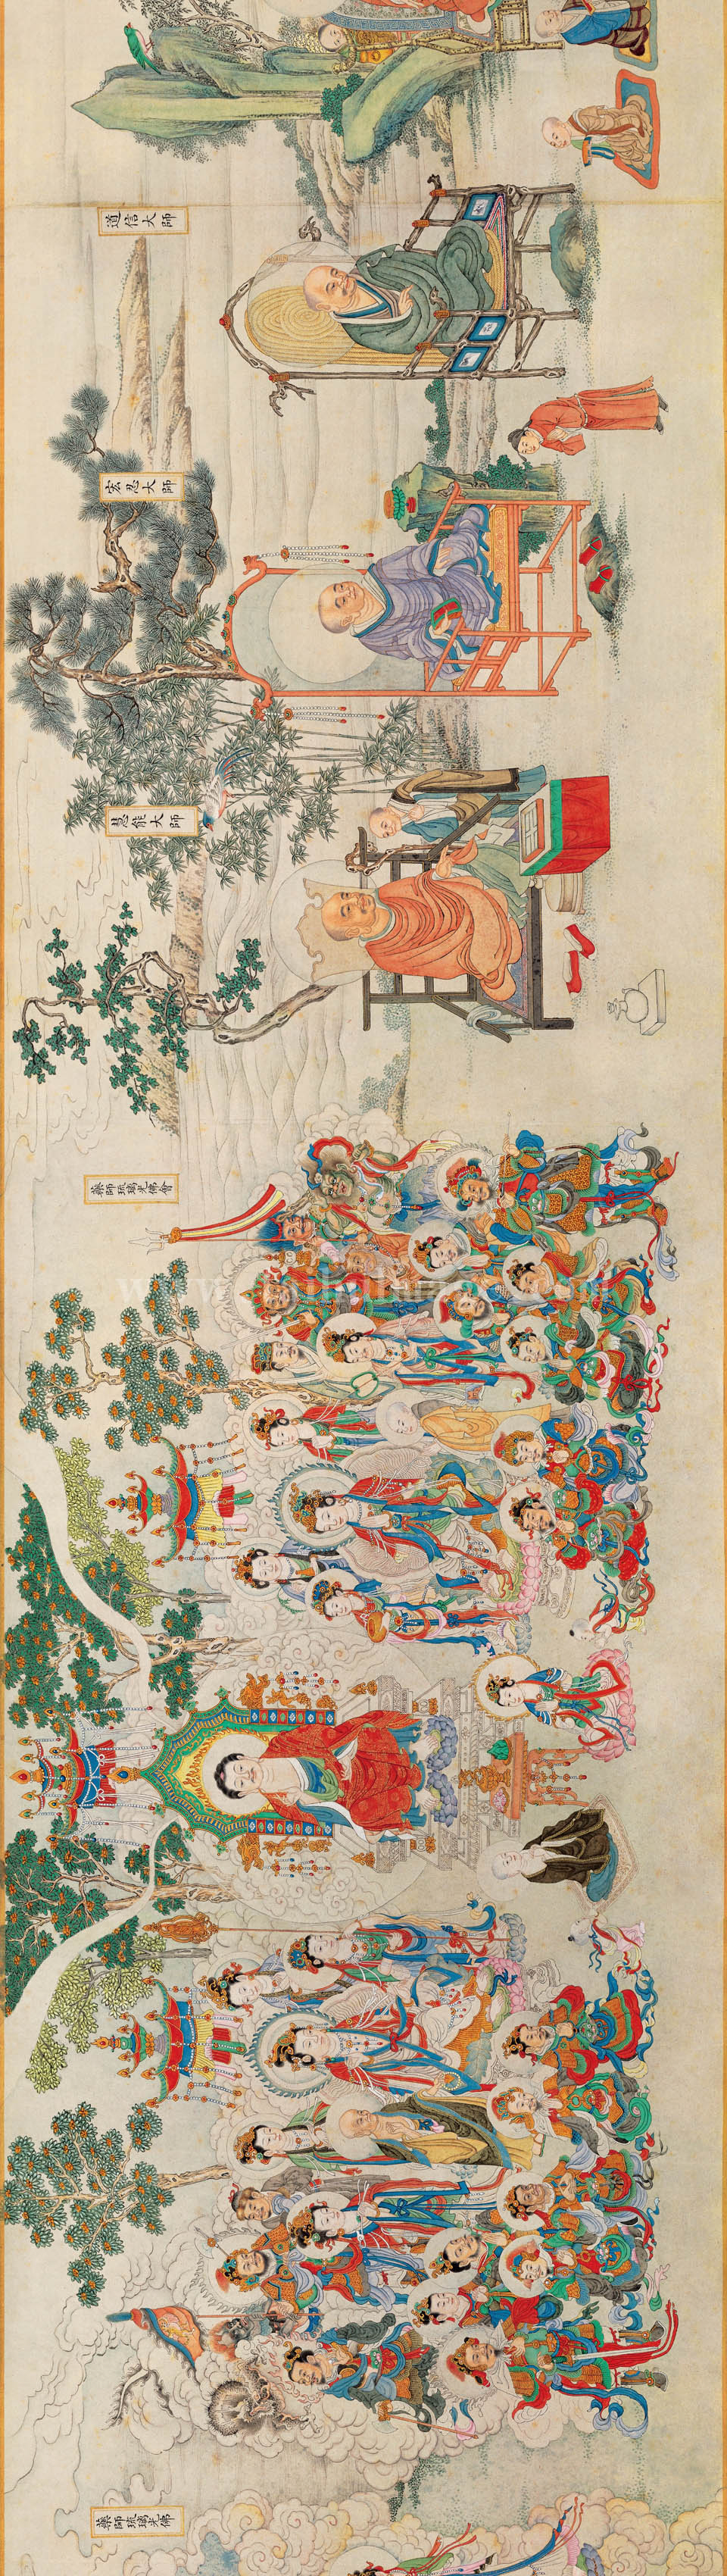 道信大師
宏忍大師
慧能大師
藥師琉璃光佛會
藥師琉璃光佛